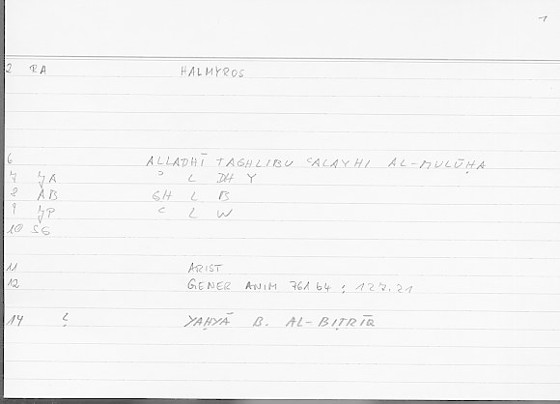 1
2 RA HALMYROS
6 ALLADHĪ TAGHLIBU ʿALAYHI AL-MULŪḤA
7 YA ʾ L DH Y
8 AB GH L B
9 YP ʿ L W
10 SG
11 ARIST
12 GENER ANIM 761 b4 : 127.21
14 YAḤYĀ B. AL-BIṬRĪQ